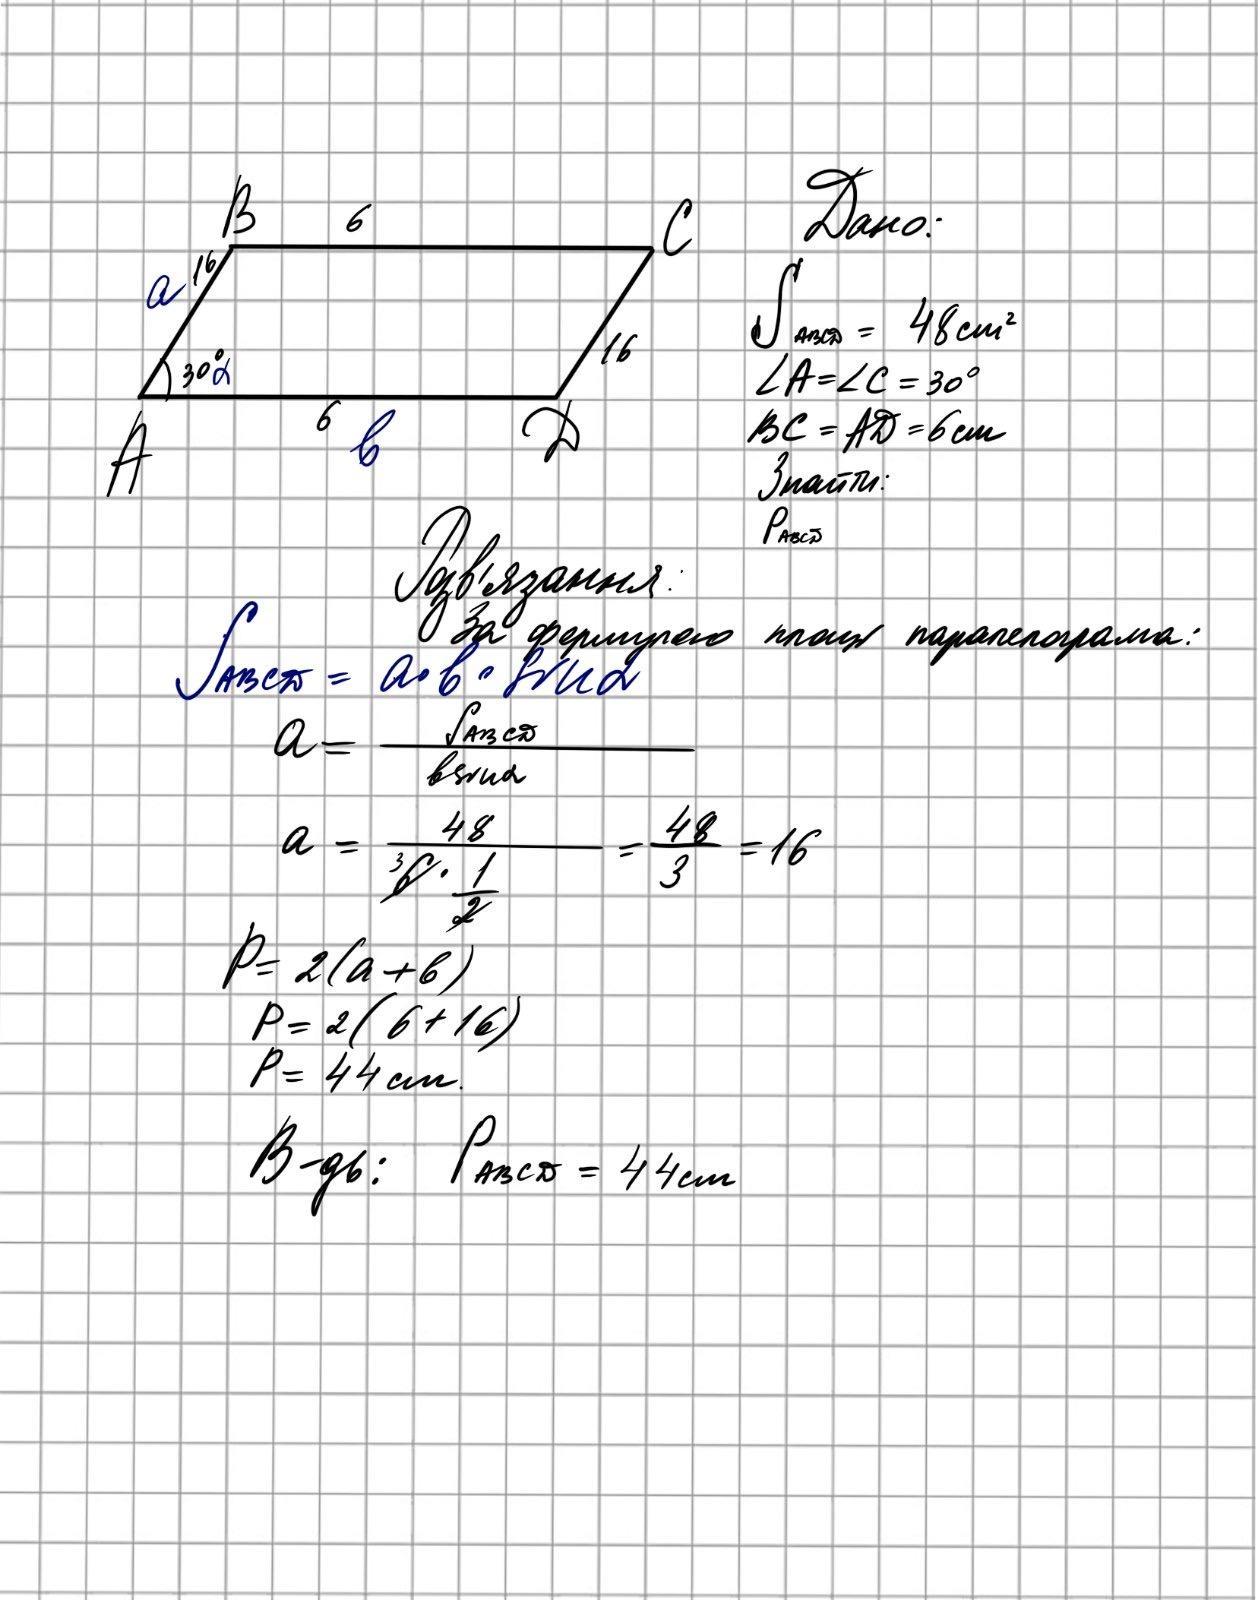 B 6 C
a 16
30° α
16
A 6 b D
Дано:
S ABCD = 48 cm²
∠A = ∠C = 30°
BC = AD = 6 cm
Знайти:
P ABCD
Розв'язання:
За формулою площі паралелограма:
S ABCD = a · b · sin α
a = S ABCD / b sin α
a = 48 / 6 3 · 1/2 = 48/3 = 16
P = 2(a + b)
P = 2(6 + 16)
P = 44 cm.
В-дь: P ABCD = 44 cm